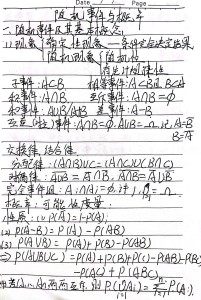 Date / / Page
随机事件与概率
一.随机事件及其基本概念
(1)现象{确定性现象—条件完全决定结果
随机现象{随机性
统计规律性
子事件:A⊂B 相等事件:A⊂B且B⊂A
积事件:A∩B 互斥事件:A∩B=∅
和事件:A∪B 差事件:A-B
对立(逆)事件:A∩B=∅,A∪B=Ω,记A=B̄
B=Ā
交换律,结合律
分配律:(A∩B)∪C=(A∪C)∩(B∪C)
对偶律:A∪B=A∩B,A∩B=A∪B
完全事件组:Ai∩Aj=∅,i≠j,=Ω
概率:可能性度量
1.性质:(1)P(Ā)=1-P(A);
(2)P(A-B)=P(A)-P(AB)
(3)P(A∪B)=P(A)+P(B)-P(AB)
⇒P(A∪B∪C)=P(A)+P(B)+P(C)-P(AB)-P(BC)
-P(AC)+P(ABC)
(4)若A1…An两两互斥,则P(∪Ai)=ΣP(Ai)